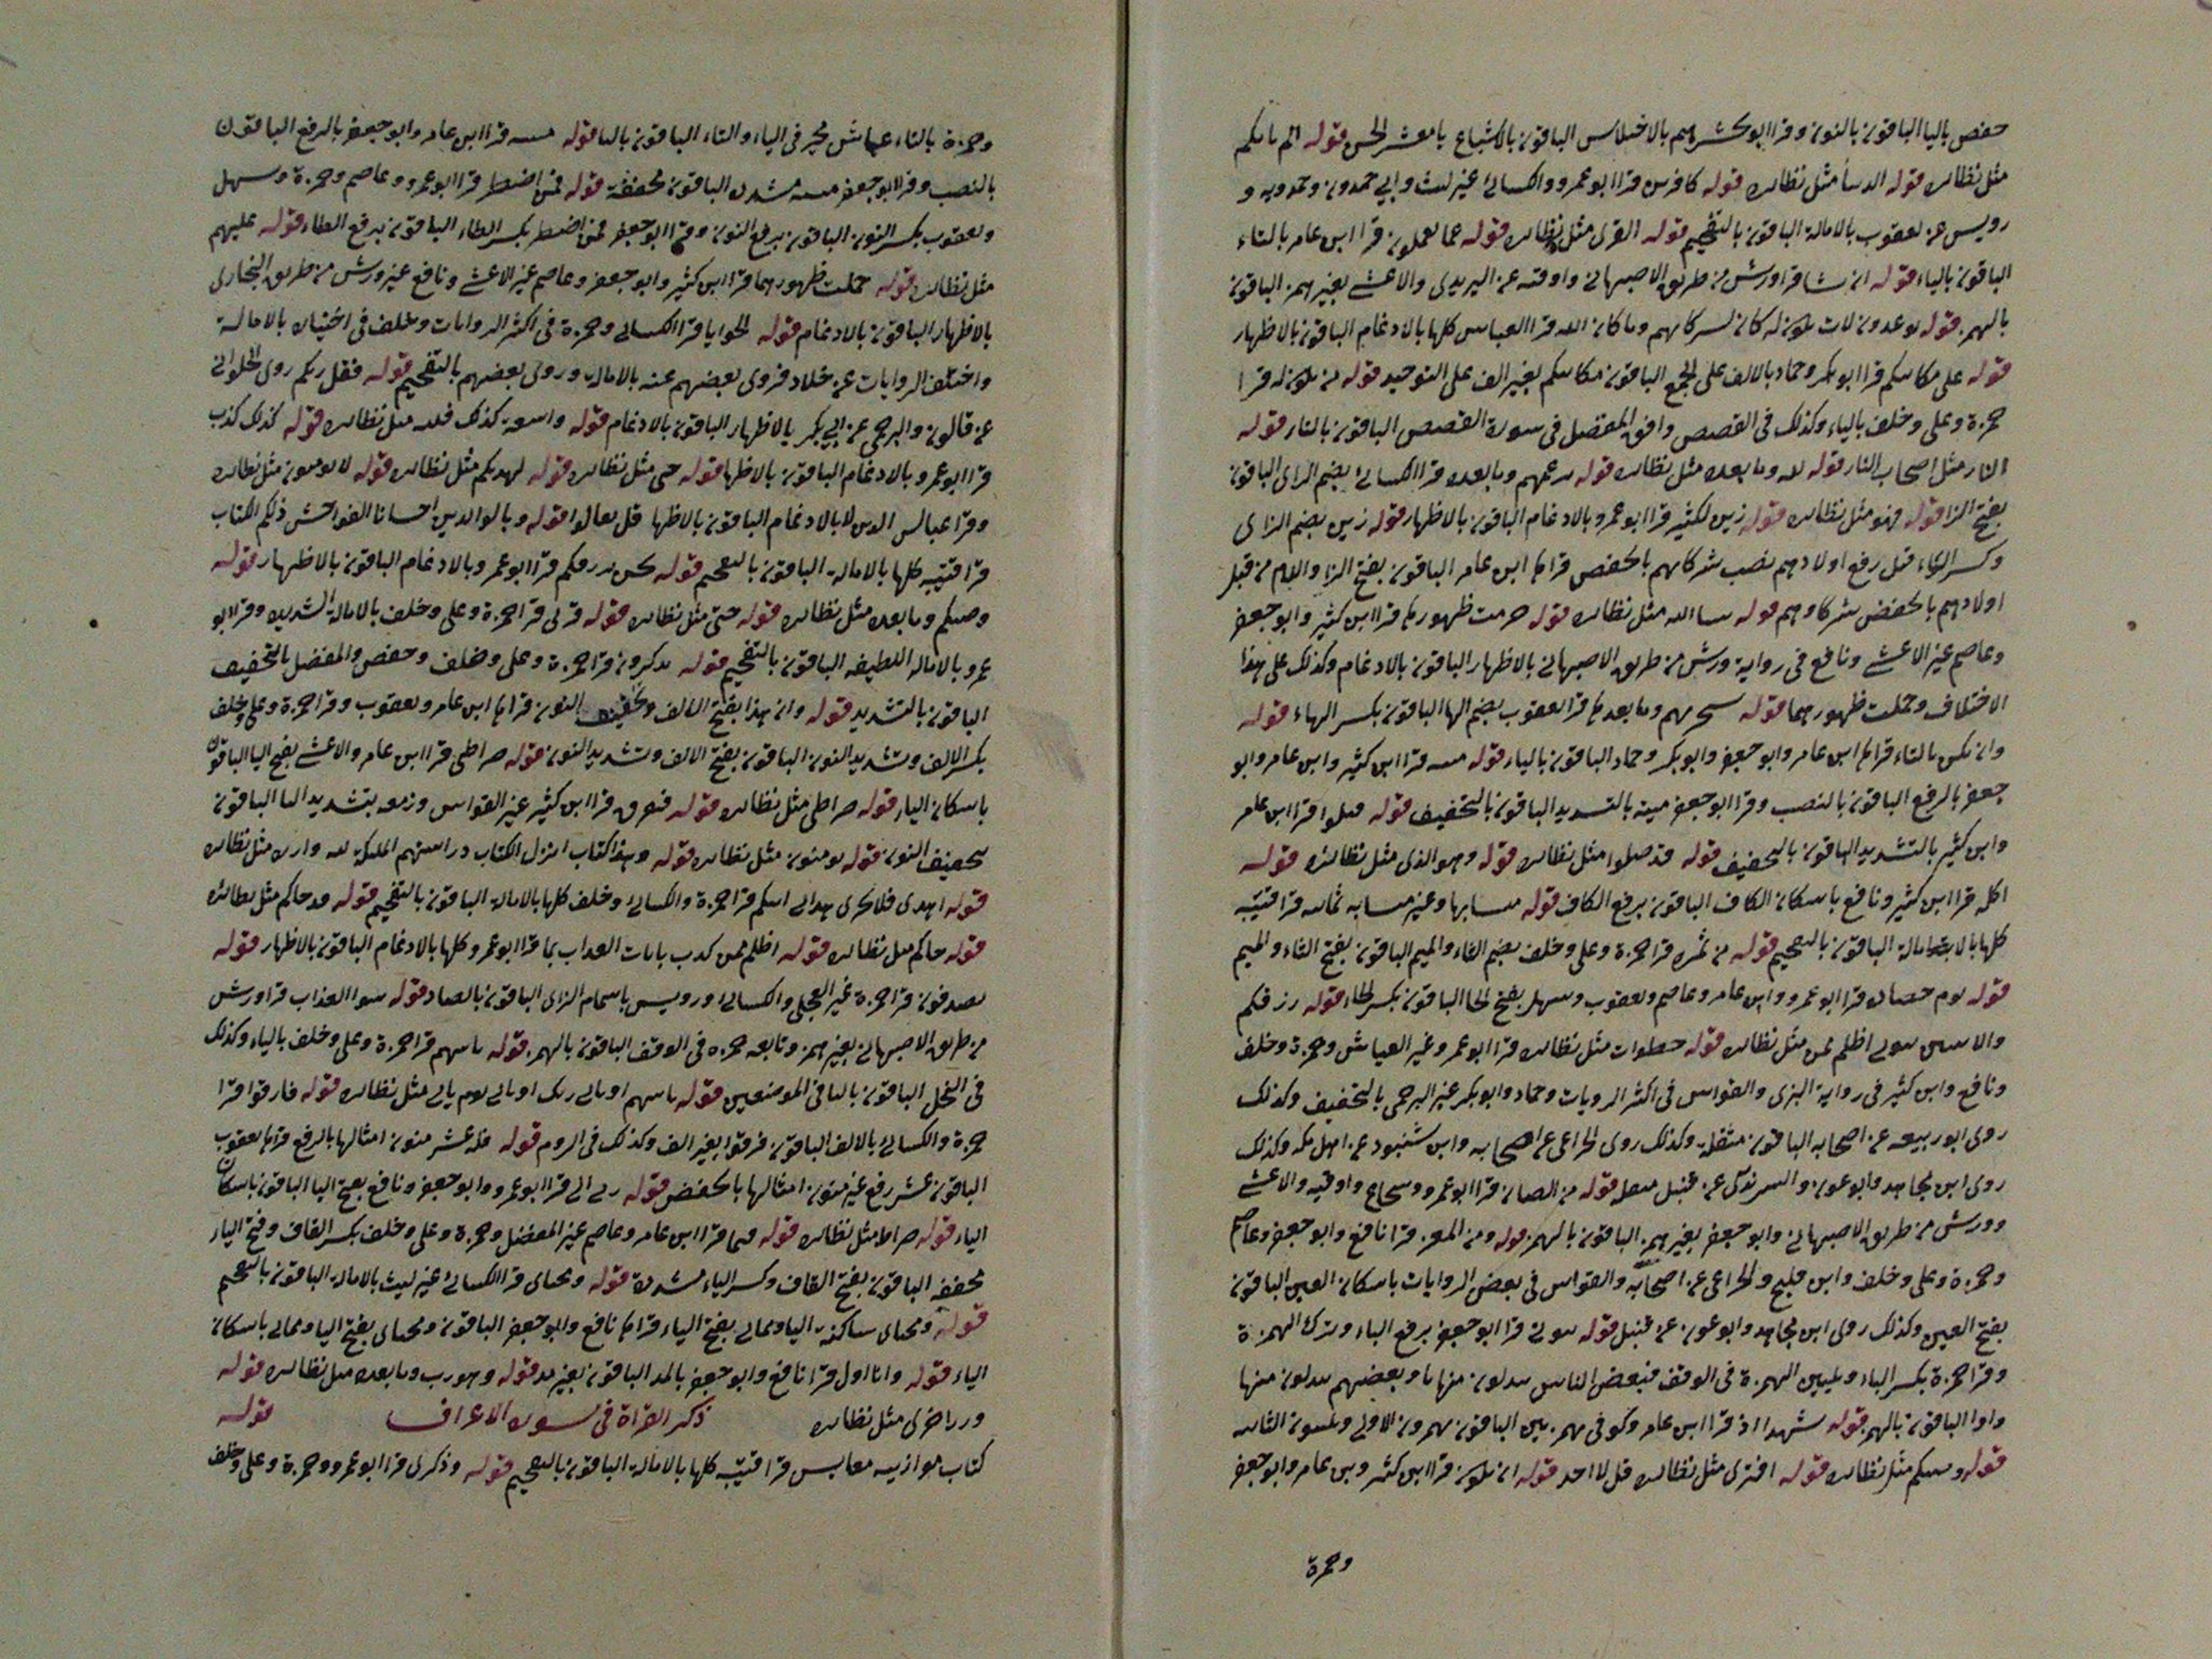 حفص باليا الباقون بالنون وقرا ابو نشيرهم بالاختلاس الباقون بالاشباع يا معشر الجن قوله الم ياتكم
مثل نظائره قوله الدنيا مثل نظائره قوله كافرين قرا ابو عمرو والكسائي غير ليث وابي حمدون وحمدويه و
رويس عن يعقوب بالامالة الباقون بالتفخيم قوله القرى مثل نظائره قوله عما يعملون قرا ابن عامر بالتاء
الباقون بالياء قوله ان يشا قرا ورش من طريق الاصبهاني واوقيه عن اليزيدى والاعشى بغير همز الباقون
بالهمز قوله توعدون لات يكون له كان لشركائهم وما كان الله قرا العباس كلها بالادغام الباقون بالاظهار
قوله على مكانتكم قرا ابو بكر وحماد بالالف على الجمع الباقون مكانتكم بغير الف على التوحيد قوله من يكون له قرا
حمزة وعلى وخلف بالياء وكذلك فى القصص وافق المفضل فى سورة القصص الباقون بالتاء قوله
النار مثل اصحاب النار قوله لله وما بعده مثل نظائره قوله بزعمهم وما بعده قرا الكسائى بضم الزاى الباقون
بفتح الزا قوله فهو مثل نظائره قوله زين لكثير قرا ابو عمرو بالادغام الباقون بالاظهار قوله زين بضم الزاى
وكسر الياء قتل رفع اولادهم نصب شركائهم بالخفض قراها ابن عامر الباقون بفتح الزا واللام من قتل
اولادهم بالخفض شركاوهم قوله شا الله مثل نظائره قوله حرمت ظهورها قرا ابن كثير وابو جعفر
وعاصم غير الاعشى ونافع فى رواية ورش من طريق الاصبهانى بالاظهار الباقون بالادغام وكذلك على هذا
الاختلاف وحملت ظهورهما قوله سيجزيهم وما بعدها قرا يعقوب بضم الها الباقون بكسر الهاء قوله
وان تكن بالتاء قراها ابن عامر وابو جعفر وابو بكر وحماد الباقون بالياء قوله ميتة قرا ابن كثير وابن عامر وابو
جعفر بالرفع الباقون بالنصب وقرا ابو جعفر ميتة بالتشديد الباقون بالتخفيف قوله قتلوا قرا ابن عامر
وابن كثير بالتشديد الباقون بالتخفيف قوله قد ضلوا مثل نظائره قوله وهو الذى مثل نظائره قوله
اكله قرا ابن كثير ونافع باسكان الكاف الباقون برفع الكاف قوله متشابها وغير متشابه ثمانية قرا قتيبة
كلها بالامالة الباقون بالتفخيم قوله من ثمره قرا حمزة وعلى وخلف بضم الثاء والميم الباقون بفتح الثاء والميم
قوله يوم حصاده قرا ابو عمرو وابن عامر وعاصم ويعقوب وسهل بفتح الحا الباقون بكسر الحاء قوله رزقكم
والانثيين نبونى اظلم ممن مثل نظائره قوله خطوات مثل نظائره قرا ابو عمرو غير العياش وحمزة وخلف
ونافع وابن كثير فى رواية البزى والقواس فى اكثر الروايات وحماد وابو بكر غير البرجمى بالتخفيف وكذلك
روى ابو ربيعه عن اصحابه الباقون مثقلة وكذلك روى الخزاعى عن اصحابه وابن شنبود عن اهل مكه وكذلك
روى ابن مجاهد وابو عون والسرندى عن قنبل مثقله قوله من الضان قرا ابو عمرو وشجاع واوقيه والاعشى
وورش من طريق الاصبهانى وابو جعفر بغير همز الباقون بالهمز قوله ومن المعز قرا نافع وابو جعفر وعاصم
وحمزة وعلى وخلف وابن فليح والخزاعى عن اصحابه والقواس فى بعض الروايات باسكان العين الباقون
بفتح العين وكذلك روى ابن مجاهد وابو عون عن قنبل قوله نبونى قرا ابو جعفر برفع الباء وترك الهمزة
وقرا حمزة بكسر الباء وتليين الهمزة فى الوقف فبعض الناس يبدلون منها يا وبعضهم يبدلون منها
واوا الباقون بالهمز قوله شهدا اذ قرا ابن عامر وكوفى بهمزتين الباقون يهمزون الاولى ويلينون الثانيه
قوله وينبئكم مثل نظائره قوله افترى مثل نظائره قل لا اجد قوله ان يكون قرا ابن كثير وبن عامر وابو جعفر
وحمزة
وحمزة بالتاء عياش مخير فى الياء والتاء الباقون باليا قوله ميتة قرا ابن عامر وابو جعفر بالرفع الباقون
بالنصب وقرا ابو جعفر ميتة مشددة الباقون مخففة قوله فمن اضطر قرا ابو عمرو وعاصم وحمزة وسهل
ويعقوب بكسر النون الباقون برفع النون وقرا ابو جعفر فمن اضطر بكسر الطاء الباقون برفع الطاء قوله عليهم
مثل نظائره قوله حملت ظهورهما قرا ابن كثير وابو جعفر وعاصم غير الاعشى ونافع غير ورش من طريق البخارى
بالاظهار الباقون بالادغام قوله الحوايا قرا الكسائى وحمزة فى اكثر الروايات وخلف فى اختياره بالامالة
واختلف الروايات عن خلاد فروى بعضهم عنه بالامالة وروى بعضهم بالتفخيم قوله فقل ربكم روى الحلوانى
عن قالون والبرجمى عن ابى بكر بالاظهار الباقون بالادغام قوله واسعة كذلك فلله مثل نظائره قوله كذلك كذب
قرا ابو عمرو بالادغام الباقون بالاظهار قوله حتى مثل نظائره قوله لهديكم مثل نظائره قوله لا يومنون مثل نظائره
وقرا عباس الذين لا بالادغام الباقون بالاظهار قل تعالوا قوله وبالوالدين احسانا الفواحش ذلكم الكتاب
قرا قتيبة كلها بالامالة الباقون بالتفخيم قوله نحن نرزقكم قرا ابو عمرو بالادغام الباقون بالاظهار قوله
وصيكم وما بعده مثل نظائره قوله حتى مثل نظائره قوله قربى قرا حمزة وعلى وخلف بالامالة الشديده وقرا ابو
عمرو بالاماله اللطيفه الباقون بالتفخيم قوله تذكرون قرا حمزة وعلى وخلف وحفص والمفضل بالتخفيف
الباقون بالتشديد قوله وان هذا بفتح الالف وتخفيف النون قراها ابن عامر ويعقوب وقرا حمزة وعلى وخلف
بكسر الالف وتشديد النون الباقون بفتح الالف وتشديد النون قوله صراطى قرا ابن عامر والاعشى بفتح اليا الباقون
باسكان الياء قوله صراطى مثل نظائره قوله فتفرق قرا ابن كثير غير القواس وزمعه بتشديد التا الباقون
بتخفيف النون قوله يومنون مثل نظائره قوله وهذا كتاب انزل الكتاب دراستهم الملئكة لله واره مثل نظائره
قوله اهدى فلا يجزى هدانى اتيكم قرا حمزة والكسائى وخلف كلها بالامالة الباقون بالتفخيم قوله قد جاكم مثل نظائره
قوله جاكم مثل نظائره قوله اظلم ممن كذب بايات العذاب بما قرا ابو عمرو كلها بالادغام الباقون بالاظهار قوله
يصدفون قرا حمزة غير العجلى والكسائى ورويس باشمام الزاى الباقون بالصاد قوله سوا العذاب قرا ورش
من طريق الاصبهانى بغير همز وتابعه حمزه فى الوقف الباقون بالهمز قوله ياتيهم قرا حمزة وعلى وخلف بالياء وكذلك
فى النحل الباقون بالتا فى الموضعين قوله ياتيهم او ياتى ربك او ياتى يوم ياتى مثل نظائره قوله فارقوا قرا
حمزة والكسائى بالالف الباقون فرقوا بغير الف وكذلك فى الروم قوله فله عشر منون امثالها بالرفع قراها يعقوب
الباقون عشر رفع غير منون امثالها بالخفض قوله ربى الى قرا ابو عمرو وابو جعفر ونافع بفتح اليا الباقون باسكان
الياء قوله صراط مثل نظائره قوله قيما قرا ابن عامر وعاصم غير المفضل وحمزة وعلى وخلف بكسر القاف وفتح الياء
مخففه الباقون بفتح القاف وكسر الياء مشددة قوله ومحياى قرا الكسائى غير ليث بالامالة الباقون بالتفخيم
قوله ومحياى ساكنة اليا ومماتى بفتح الياء قراها نافع وابو جعفر الباقون ومحياى بفتح اليا ومماتى باسكان
الياء قوله وانا اول قرا نافع وابو جعفر بالمد الباقون بغير مد قوله وهو رب وما بعده مثل نظائره قوله
وزر اخرى مثل نظائره ذكر القراة فى سورة الاعراف قوله
كتاب موازينه معايش قرا قتيبة كلها بالامالة الباقون بالتفخيم قوله وذكرى قرا ابو عمرو وحمزة وعلى وخلف